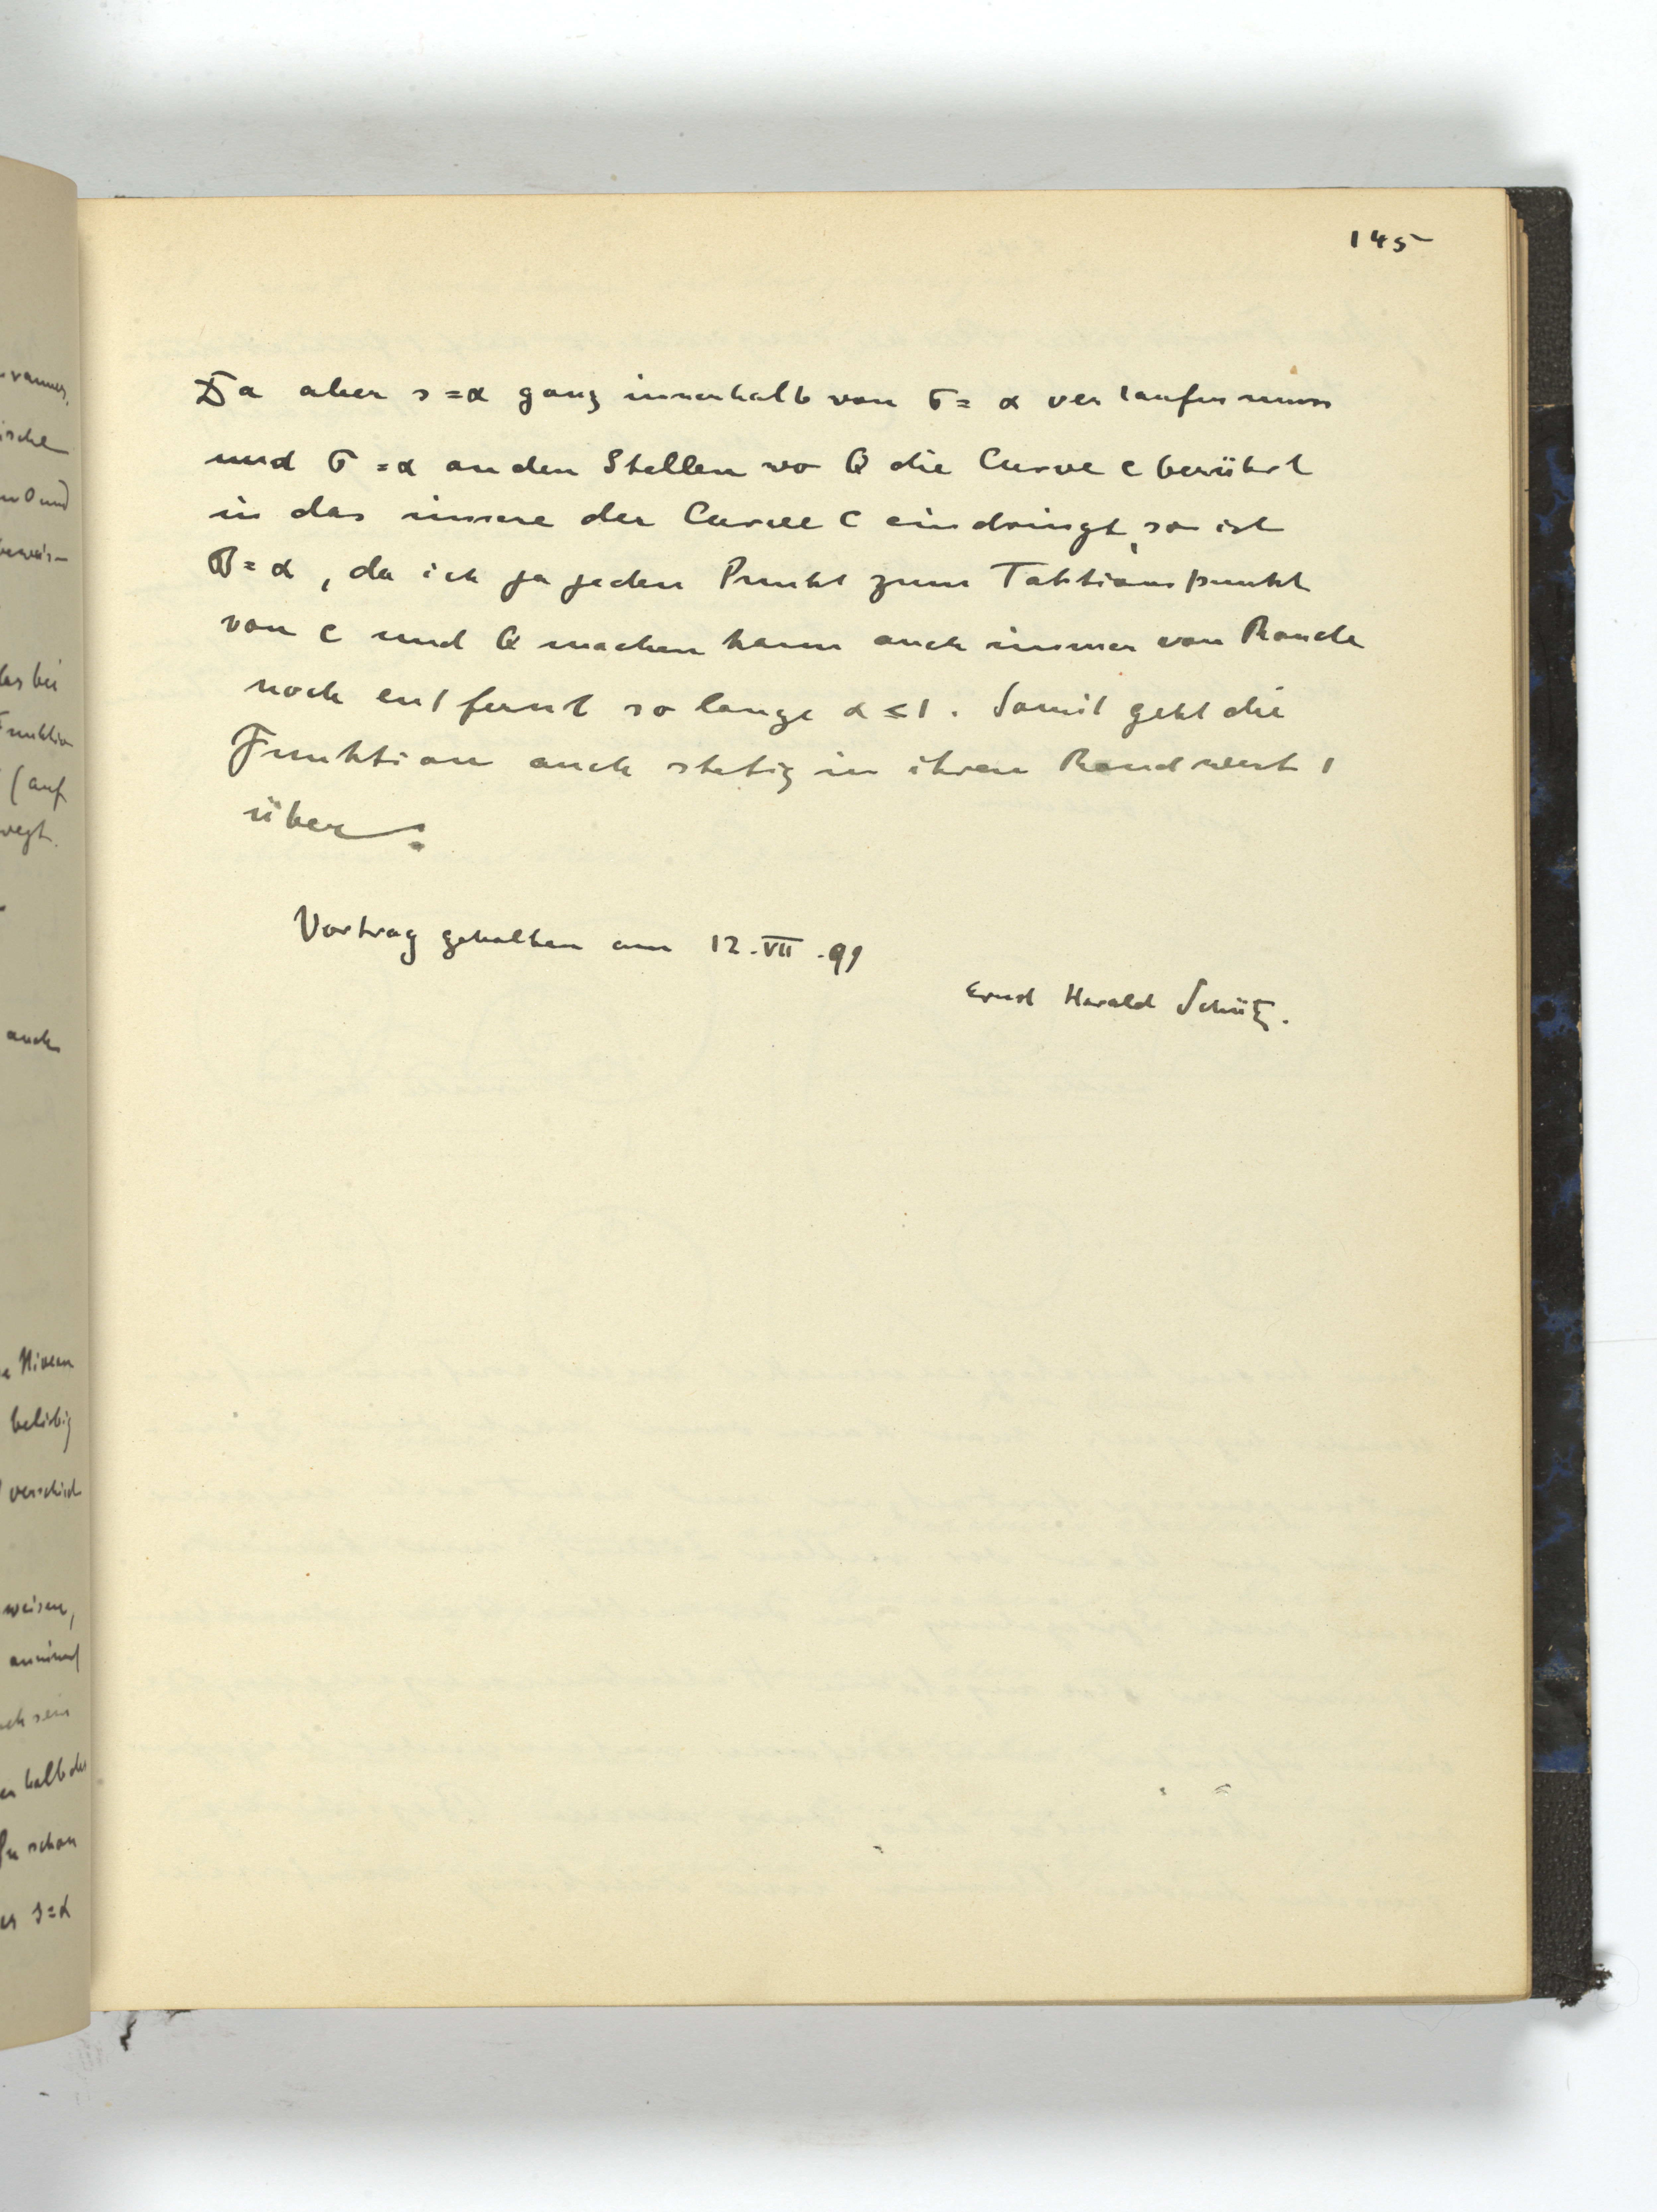 145
Da aber s=α ganz innerhalb von σ=α verlaufen muss
und σ=α an den Stellen wo Q die Curve C berührt
in das innere der Curve C eindringt, so ist
σ=α, da ich ja jeden Punkt zum Taktionspunkt
von C und Q machen kann auch immer von Rande
noch entfernt so lange α≤1. Somit geht die
Funktion auch stetig in ihren Randwert 1
über.
Vortrag gehalten am 12.VII.99
Ernst Harald Schütz.
ische
n 0 und
das bei
(auf
auch
Niveau
beliebig
weisen,
schon
s=α